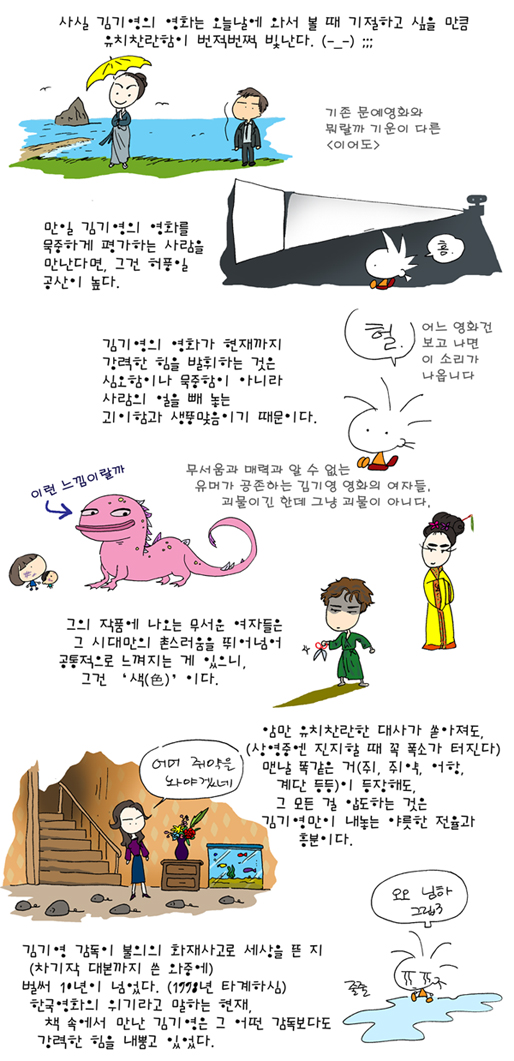 사실 김기영의 영화는 오늘날에 와서 볼 때 기절하고 싶을 만큼
유치찬란함이 번쩍번쩍 빛난다. (-_-) ;;;
기존 문예영화와
뭐랄까 기운이 다른
<이어도>
만일 김기영의 영화를
묵중하게 평가하는 사람을
만난다면, 그건 허풍일
공산이 높다.
흠.
김기영의 영화가 현재까지
강력한 힘을 발휘하는 것은
심오함이나 묵중함이 아니라
사람의 얼을 빼 놓는
괴이함과 생뚱맞음이기 때문이다.
헐.
어느 영화건
보고 나면
이 소리가
나옵니다
이런 느낌이랄까
무서움과 매력과 알 수 없는
유머가 공존하는 김기영 영화의 여자들,
괴물이긴 한데 그냥 괴물이 아니다.
그의 작품에 나오는 무서운 여자들은
그 시대만의 촌스러움을 뛰어넘어
공통적으로 느껴지는 게 있으니,
그건 '색(色)' 이다.
암만 유치찬란한 대사가 쏟아져도,
(상영중엔 진지할 때 꼭 폭소가 터진다)
맨날 똑같은 거(쥐, 쥐약, 어항,
계단 등등)이 등장해도,
그 모든 걸 압도하는 것은
김기영만이 내놓는 야릇한 전율과
흥분이다.
어머 쥐약을
놔야겠네
김기영 감독이 불의의 화재사고로 세상을 뜬 지
(차기작 대본까지 쓴 와중에)
벌써 10년이 넘었다. (1998년 타계하심)
한국영화의 위기라고 말하는 현재,
책 속에서 만난 김기영은 그 어떤 감독보다도
강력한 힘을 내뿜고 있었다.
오오 님하
그립
ㅠㅠ
줄줄